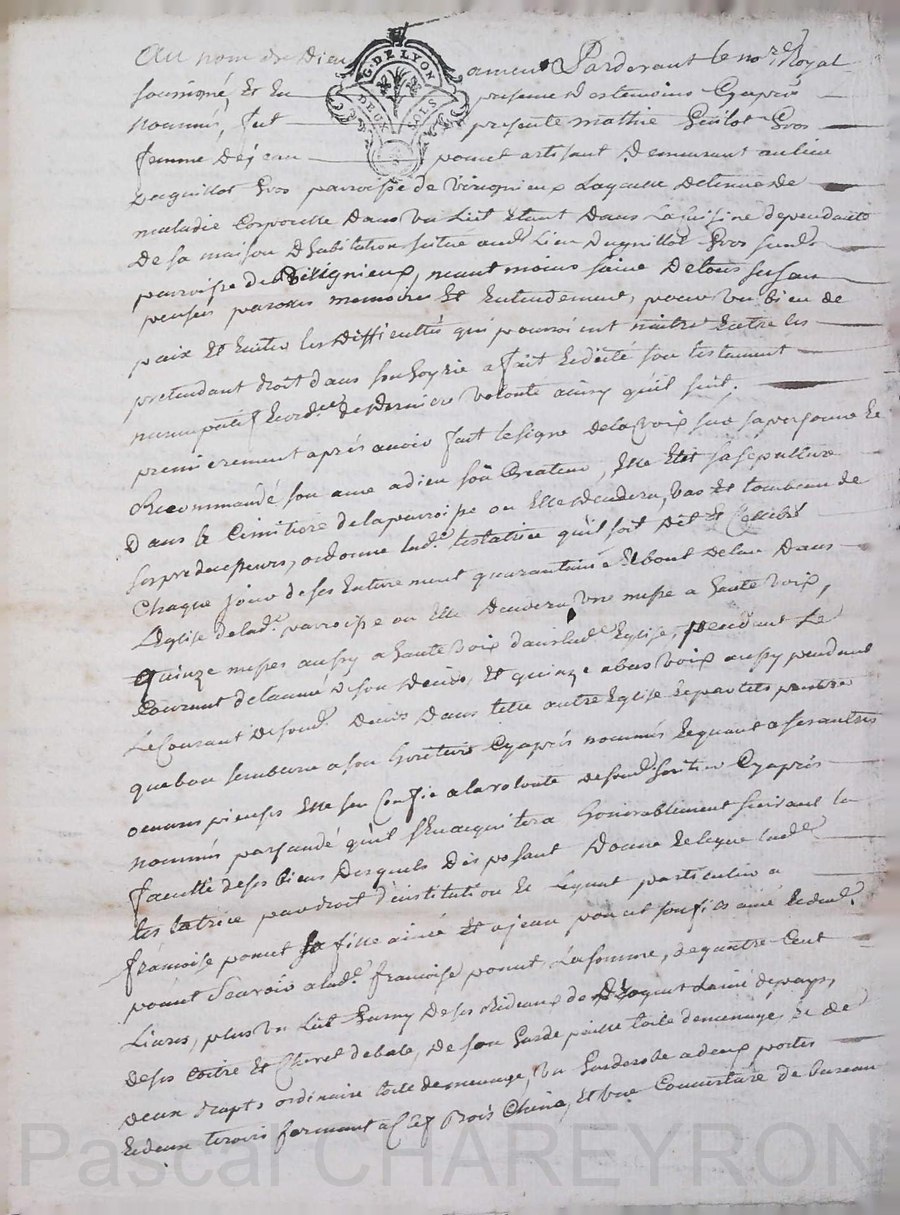 Au nom de Dieu amen Pardevant le no.re Royal
soussigné et en presence des temoins cyaprés
nommés, fut presente mathie Guilot Gros
femme de jean ponut artisant demeurant au lieu
de guillot Gros parroisse de laquelle detenue de
maladie corporelle dans un Lit etant dans la cuisine dependante
de sa maison d'habitation située aud. Lieu du guillot Gros sus.d
parroisse de neant moins saine de tous ses sans
pensés parorus memoires et Entendement, pour un bien de
paix et eviter les difficultés qui pourroient naitre entre les
pretendant droit dans son hoyrie a fait et dicté son testament
nunupatif et ordre de derniere volonte ainsy qu'il suit.
premierement aprés avoir fait le signe de la Croix sur sa personne et
Recommandé son ame a dieu son Createur, Elle Elit sa sepulture
Dans le Cimitiere de la parroisse ou Elle decedera, vas et tombeau de
ses predecesseurs, ordonne lad.e testatrice qu'il soit dit et Celebré
Chaque jour de ses Enterrement quarantaine et bout de lan dans
L'Eglise de lad.e parroisse ou elle decedera une messe a haute voix,
quinze messes aussy a haute voix dans lad.e Eglise, pendant le
Courant de lannée de son deces, et quinze a bas voix aussy pendant
Le Courant de son d. deces dans telle autre Eglise et par tels prestre
que bon semblera a son heritier cyaprés nommés et quant a ses autres
oeuvres pieuses elle sen confie a la volonte de son d. heritier cyaprés
nommés persuadé qu'il s'en acquitera honorablement suivant la
faculté de ses biens desquels disposant donne et legue lad.e
testatrice par droit d'institution et leguat particulier a
françoise ponut sa fille ainée et a jean ponut son fils ainé
ponut scavoir a lad.e françoise ponut La somme, de quatre Cent
Livres, plus un Lit Garny de ses Rideaux de laine de pays,
de ses Coitre et Chevet de bale, de son Garde paille toile de menage, et de
deux draps ordinaire toile de menage, un Garderobe a deux portes
et deux tiroirs fermant a clef Bois Chene, et une Couverture de bureau
Pascal CHAREYRON
G. DE LYON
DEUX SOLS